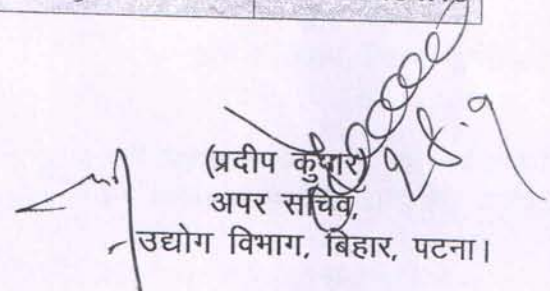 28.9
(प्रदीप कुमार)
अपर सचिव,
उद्योग विभाग, बिहार, पटना।